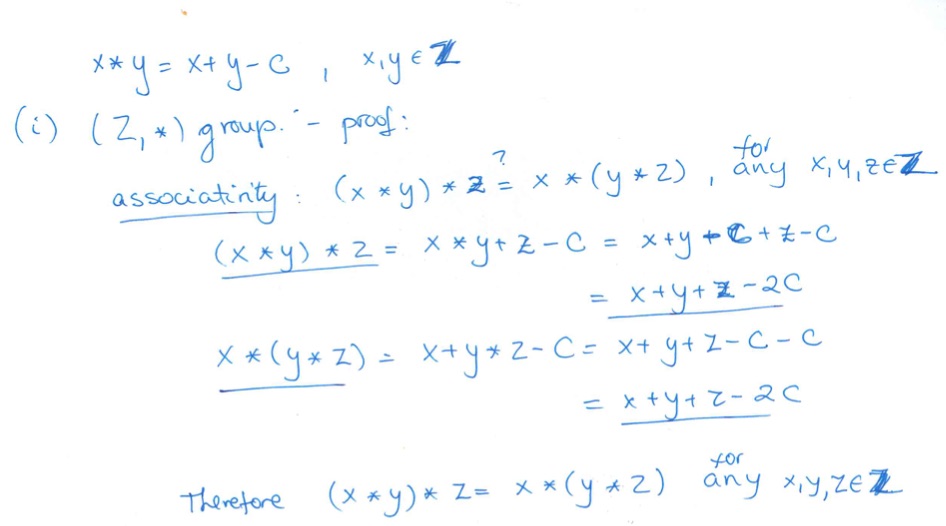 x * y = x + y - c , x, y ∈ ℤ
(i) (ℤ, *) group. - proof:
associativity : (x * y) * z ?= x * (y * z) , for any x, y, z ∈ ℤ
(x * y) * z = x * y + z - c = x + y - c + z - c
= x + y + z - 2c
x * (y * z) = x + y * z - c = x + y + z - c - c
= x + y + z - 2c
Therefore (x * y) * z = x * (y * z) for any x, y, z ∈ ℤ